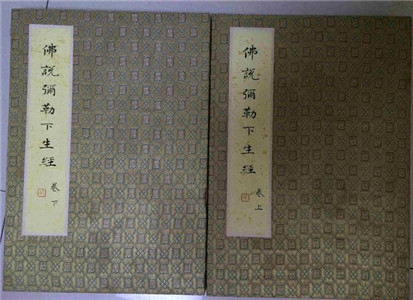 佛說彌勒下生經 卷下
佛說彌勒下生經 卷上